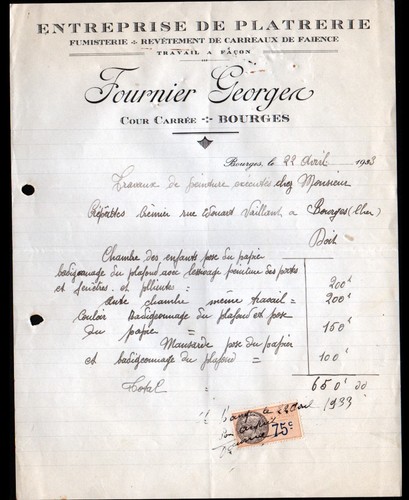 ENTREPRISE DE PLATRERIE
FUMISTERIE - REVÊTEMENT DE CARREAUX DE FAIENCE
TRAVAIL A FAÇON
Fournier Georges
COUR CARRÉE BOURGES
Bourges, le 22 Avril 1933
Travaux de peinture exécutés chez Monsieur
rue Edouard Vaillant a Bourges (Cher)
Doit
Chambre des enfants pose du papier
badigeonnage du plafond avec lessivage peinture des portes
et fenêtres et plinthes = 200f
autre chambre même travail = 200f
Couloir Badigeonnage du plafond et pose
du papier = 150f
Mansarde pose du papier
et badigeonnage du plafond = 100f
Total = 650f 00
le 22 Avril
1933
75c